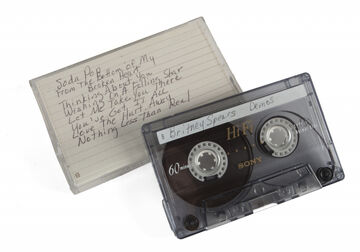 Soda Pop
From the Bottom of My
Broken Heart
Thinking About You
Wishing On A Falling Star
Let Me Take You There
You've Got It All
Love The Hurt Away
Nothing Less Than Real
Britney Spears Demos
HiFi
60min
SONY